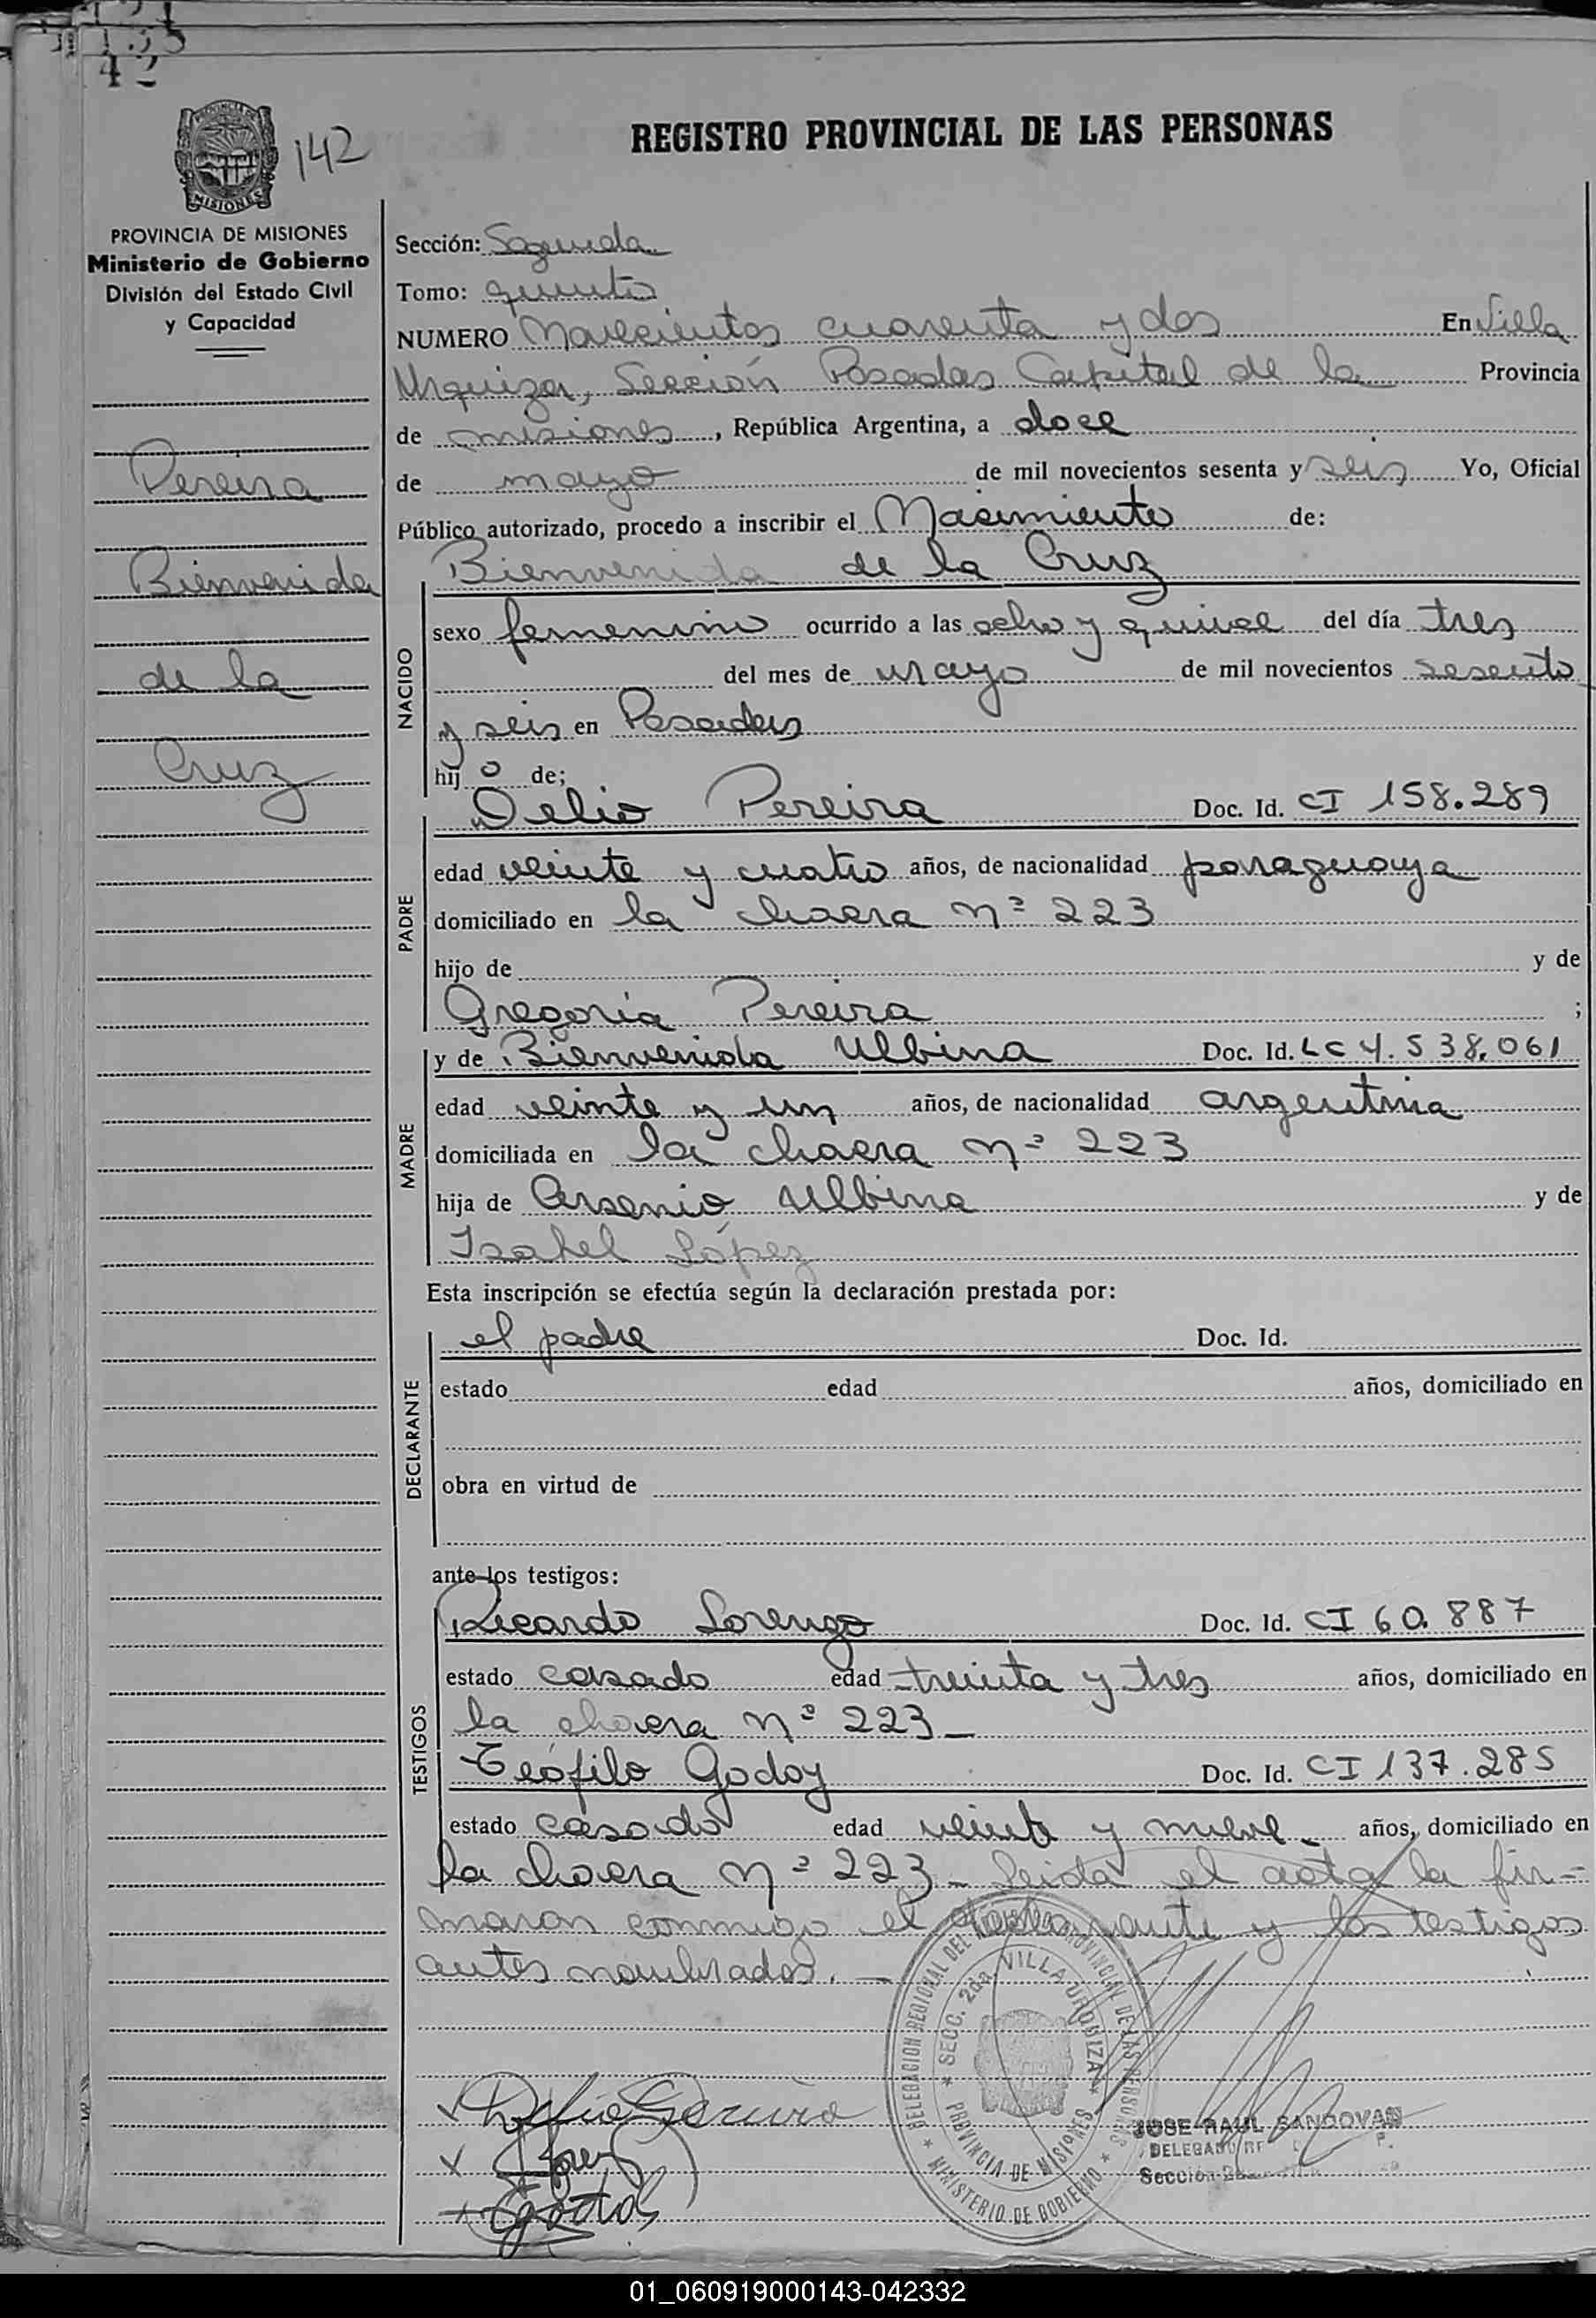 42
142
REGISTRO PROVINCIAL DE LAS PERSONAS
PROVINCIA DE MISIONES
MISIONES
PROVINCIA DE MISIONES
Ministerio de Gobierno
División del Estado Civil
y Capacidad
Pereira
Bienvenida
de la
Cruz
Sección: Segunda
Tomo: quinto
NUMERO Novecientos cuarenta y dos En Villa
Urquiza, Sección Posadas Capital de la Provincia
de misiones, República Argentina, a doce
de mayo de mil novecientos sesenta y seis Yo, Oficial
Público autorizado, procedo a inscribir el Nacimiento de:
Bienvenida de la Cruz
NACIDO
sexo femenino ocurrido a las ocho y quince del día tres
del mes de mayo de mil novecientos sesenta
y seis en Posadas
hij o de;
Delio Pereira Doc. Id. CI 158.289
PADRE
edad veinte y cuatro años, de nacionalidad paraguaya
domiciliado en la chacra nº 223
hijo de y de
Gregoria Pereira ;
y de Bienvenida Ulbina Doc. Id. LC 4.538.061
MADRE
edad veinte y un años, de nacionalidad argentina
domiciliada en la chacra nº 223
hija de Arsenio Ulbina y de
Isabel López
Esta inscripción se efectúa según la declaración prestada por:
el padre Doc. Id.
DECLARANTE
estado edad años, domiciliado en
obra en virtud de
ante los testigos:
Ricardo Lorenzo Doc. Id. CI 60.887
TESTIGOS
estado casado edad treinta y tres años, domiciliado en
la chacra nº 223_
Teófilo Godoy Doc. Id. CI 137.285
estado casado edad veinte y nueve_ años, domiciliado en
la chacra nº 223_ Leida el acta la fir=
maron conmigo el declarante y los testigos
antes nombrados._
DELEGACION REGIONAL DEL REGISTRO PROVINCIAL DE LAS PERSONAS
SECC. 2da. VILLA URQUIZA
PROVINCIA DE MISIONES
MINISTERIO DE GOBIERNO
Delio Pereira
JOSE RAUL SANDOVAL
DELEGADO
Sección
01_060919000143-042332